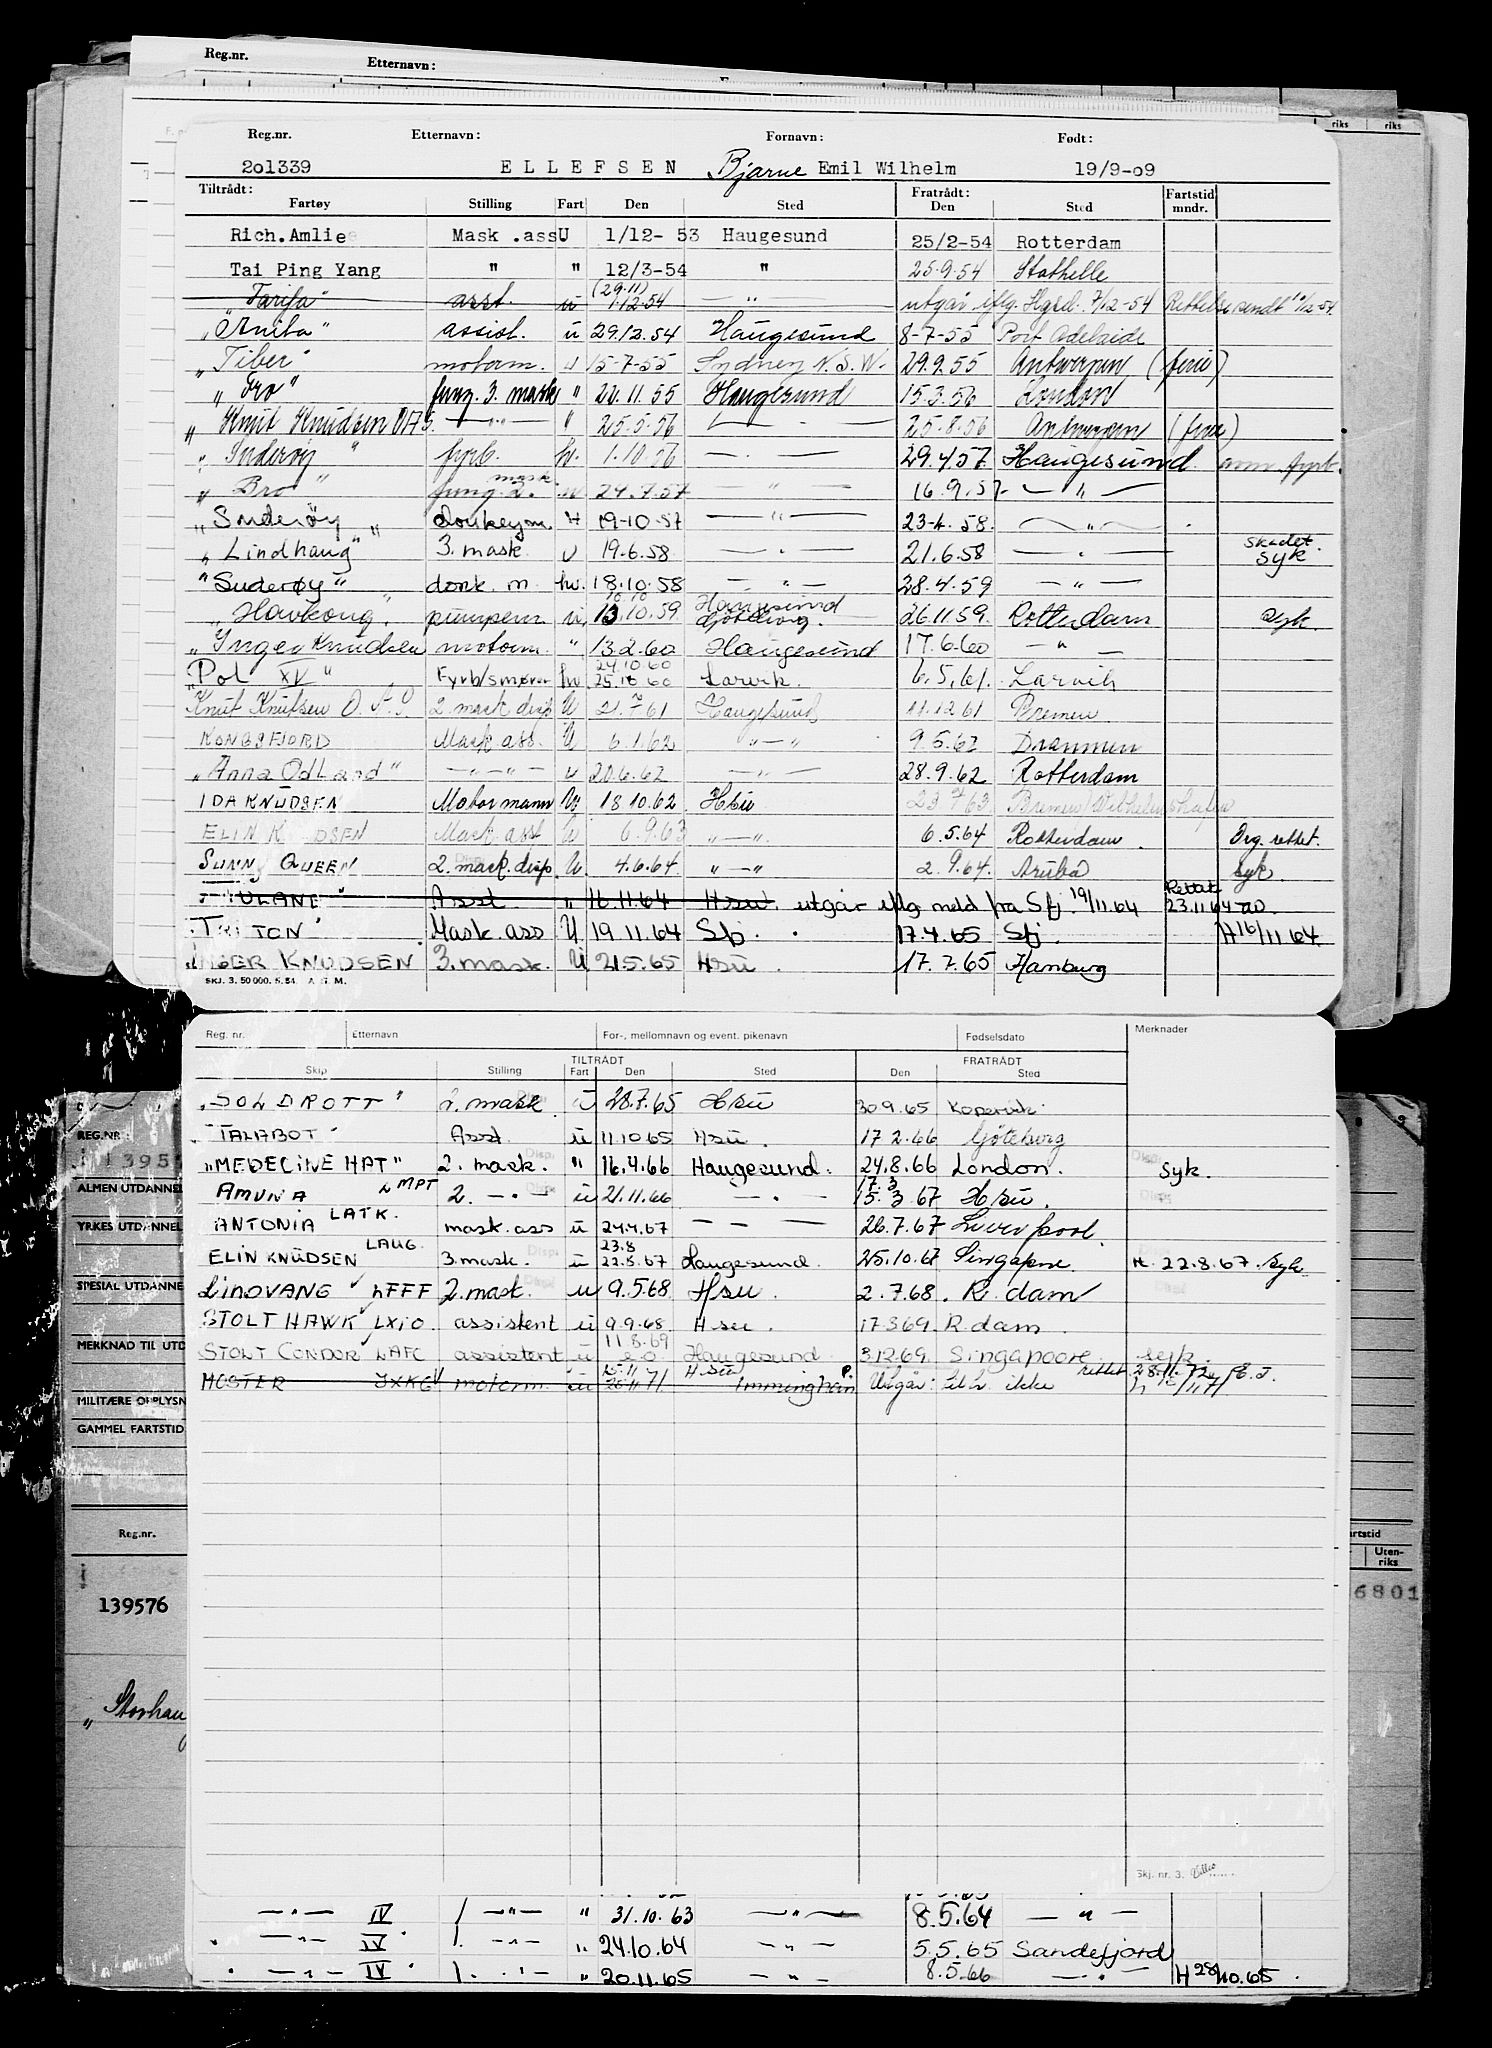 Reg.nr. Etternavn:
riks riks
Reg.nr. Etternavn: Fornavn: Født:
2o1339 ELLEFSEN Bjarne Emil Wilhelm 19/9-o9
Tiltrådt: Fratrådt: Fartstid
Fartøy Stilling Fart Den Sted Den Sted mndr.
Rich.Amlie Mask.ass U 1/12- 53 Haugesund 25/2-54 Rotterdam
Tai Ping Yang " " 12/3-54 " 25.9.54 Stathelle
(29.11)
"Tarifa" asst. u 1.12.54 — " — utgår iflg. Hgsd. 7/12-54 Rettelse sendt 10/12-54
"Anita" assist. u 29.12.54 Haugesund 8-7-55 Port Adelaide
"Tiber" motorm. u 15-7-55 Sydney N.S.W. 29.9.55 Antwerpen (ferie)
"Bro" fung. 3. mask " 22.11.55 Haugesund 15.3.56 London
"Knut Knudsen OAS. — " — " 25.5.56 — " — 25.8.56 Antwerpen (ferie)
"Suderøy" fyrb. hv. 1.10.56 — " — 29.4.57 Haugesund
"Bro" fung. 2. mask u 24.7.57 — " — 16.9.57 — " —
"Suderøy" donkeym. H 19-10-57 — " — 23-4.58. — " —
"Lindhaug" 3. mask. u 19.6.58 — " — 21.6.58 — " — skadet. syk
"Suderøy" donk. m. hv. 18.10.58 — " — 28.4.59 — " —
10.10 Haugesund
"Havkong" pumpem. u 13.10.59 Gøteborg. 26.11.59. Rotterdam syk.
"Inger Knudsen motorm. " 13.2.60 Haugesund 17.6.60 — " —
24.10.60
"Pol XV" Fyrb/smører hv 25.10.60 Larvik. 6.5.61. Larvik
Knut Knutsen O.A.S. 2. mask disp U 21.7.61 Haugesund 11.12.61 Bremen
KONGSFJORD Mask.ass. U 6.1.62 — " — 9.5.62 Drammen
"Anna Odland" — " — " — u 20.6.62 — " — 28.9.62 Rotterdam
IDA KNUDSEN Motormann U 18.10.62 Hsu 23 63 Bremen/Wilhelmshafen
ELIN KNUDSEN Mask.asst U 6.9.63 " — ". 6.5.64 Rotterdam. Org. rettet.
SUNNY QUEEN 2. mask. disp. U. 4.6.64. " — " 2.9.64. Aruba syk
Rettet
Asst " 16.11.64 Hsu. utgår iflg. meld fra Sfj. 19/11.64 23.11.64
"TRITON" Mask.ass U 19.11.64 Sfj. 17.4.65 Sfj. H 16/11 64.
INGER KNUDSEN 3.mask. U 21.5.65 Hsu. 17.7.65 Hamburg
SKJ. 3. 50 000. 5.54. A. S. M.
Reg. nr. Etternavn For-, mellomnavn og event. pikenavn Fødselsdato Merknader
TILTRÅDT FRATRÅDT
Skip Stilling Fart Den Sted Den Sted
"SOLDROTT" 2. mask u 28.7.65 Hsu 30.9.65 Kopervik
"TALABOT" Asst. u 11.10.65 Hsu. 17.2.66 Göteborg
"MEDECINE HAT" 2. mask. " 16.4.66 Haugesund. 24.8.66 London. syk.
17.3
AMUNA LMPT 2. — " — u 21.11.66 — " — 15.3.67 Hsu.
ANTONIA LATK. mask.ass u 24.4.67 — — — 26.7.67 Liverpool.
23.8
ELIN KNUDSEN LAUG. 3mask. u 22.8.67 Haugesund. 25.10.67 Singapore H. 22.8.67. syk
LINDVANG LFFF 2.mask. u 9.5.68 Hsu. 2.7.68. R.dam
STOLT HAWK LXIO assistent u 9.9.68 Hsu. 17.3.69. R.dam.
11.8.69
STOLT CONDOR LAFC assistent u Haugesund 3.12.69. Singapoore syk.
25.11 Hsu rettet 28.11.72
MOSTER JXKG motorm. u 26.11.71 Immingham Utgår: tiltr. ikke
REG.NR
ALMEN UTDANNEL
YRKES UTDANNEL
SPESIAL UTDANNE
MERKNAD TIL UTD
MILITÆRE OPPLYSN
GAMMEL FARTSTID
Reg.nr. artstid
Uten-
riks
139576 6801
"Storhaug
Skj. nr. 3.
— " — IV 1 — " — " 31.10.63 — " — 8.5.64 — " —
" — " — IV 1. — " — " 24.10.64 — " — 5.5.65 Sandefjord
" — " — IV " 1. — " — " 20.11.65 — " — 8.5.66 — " — H 28/10.65.